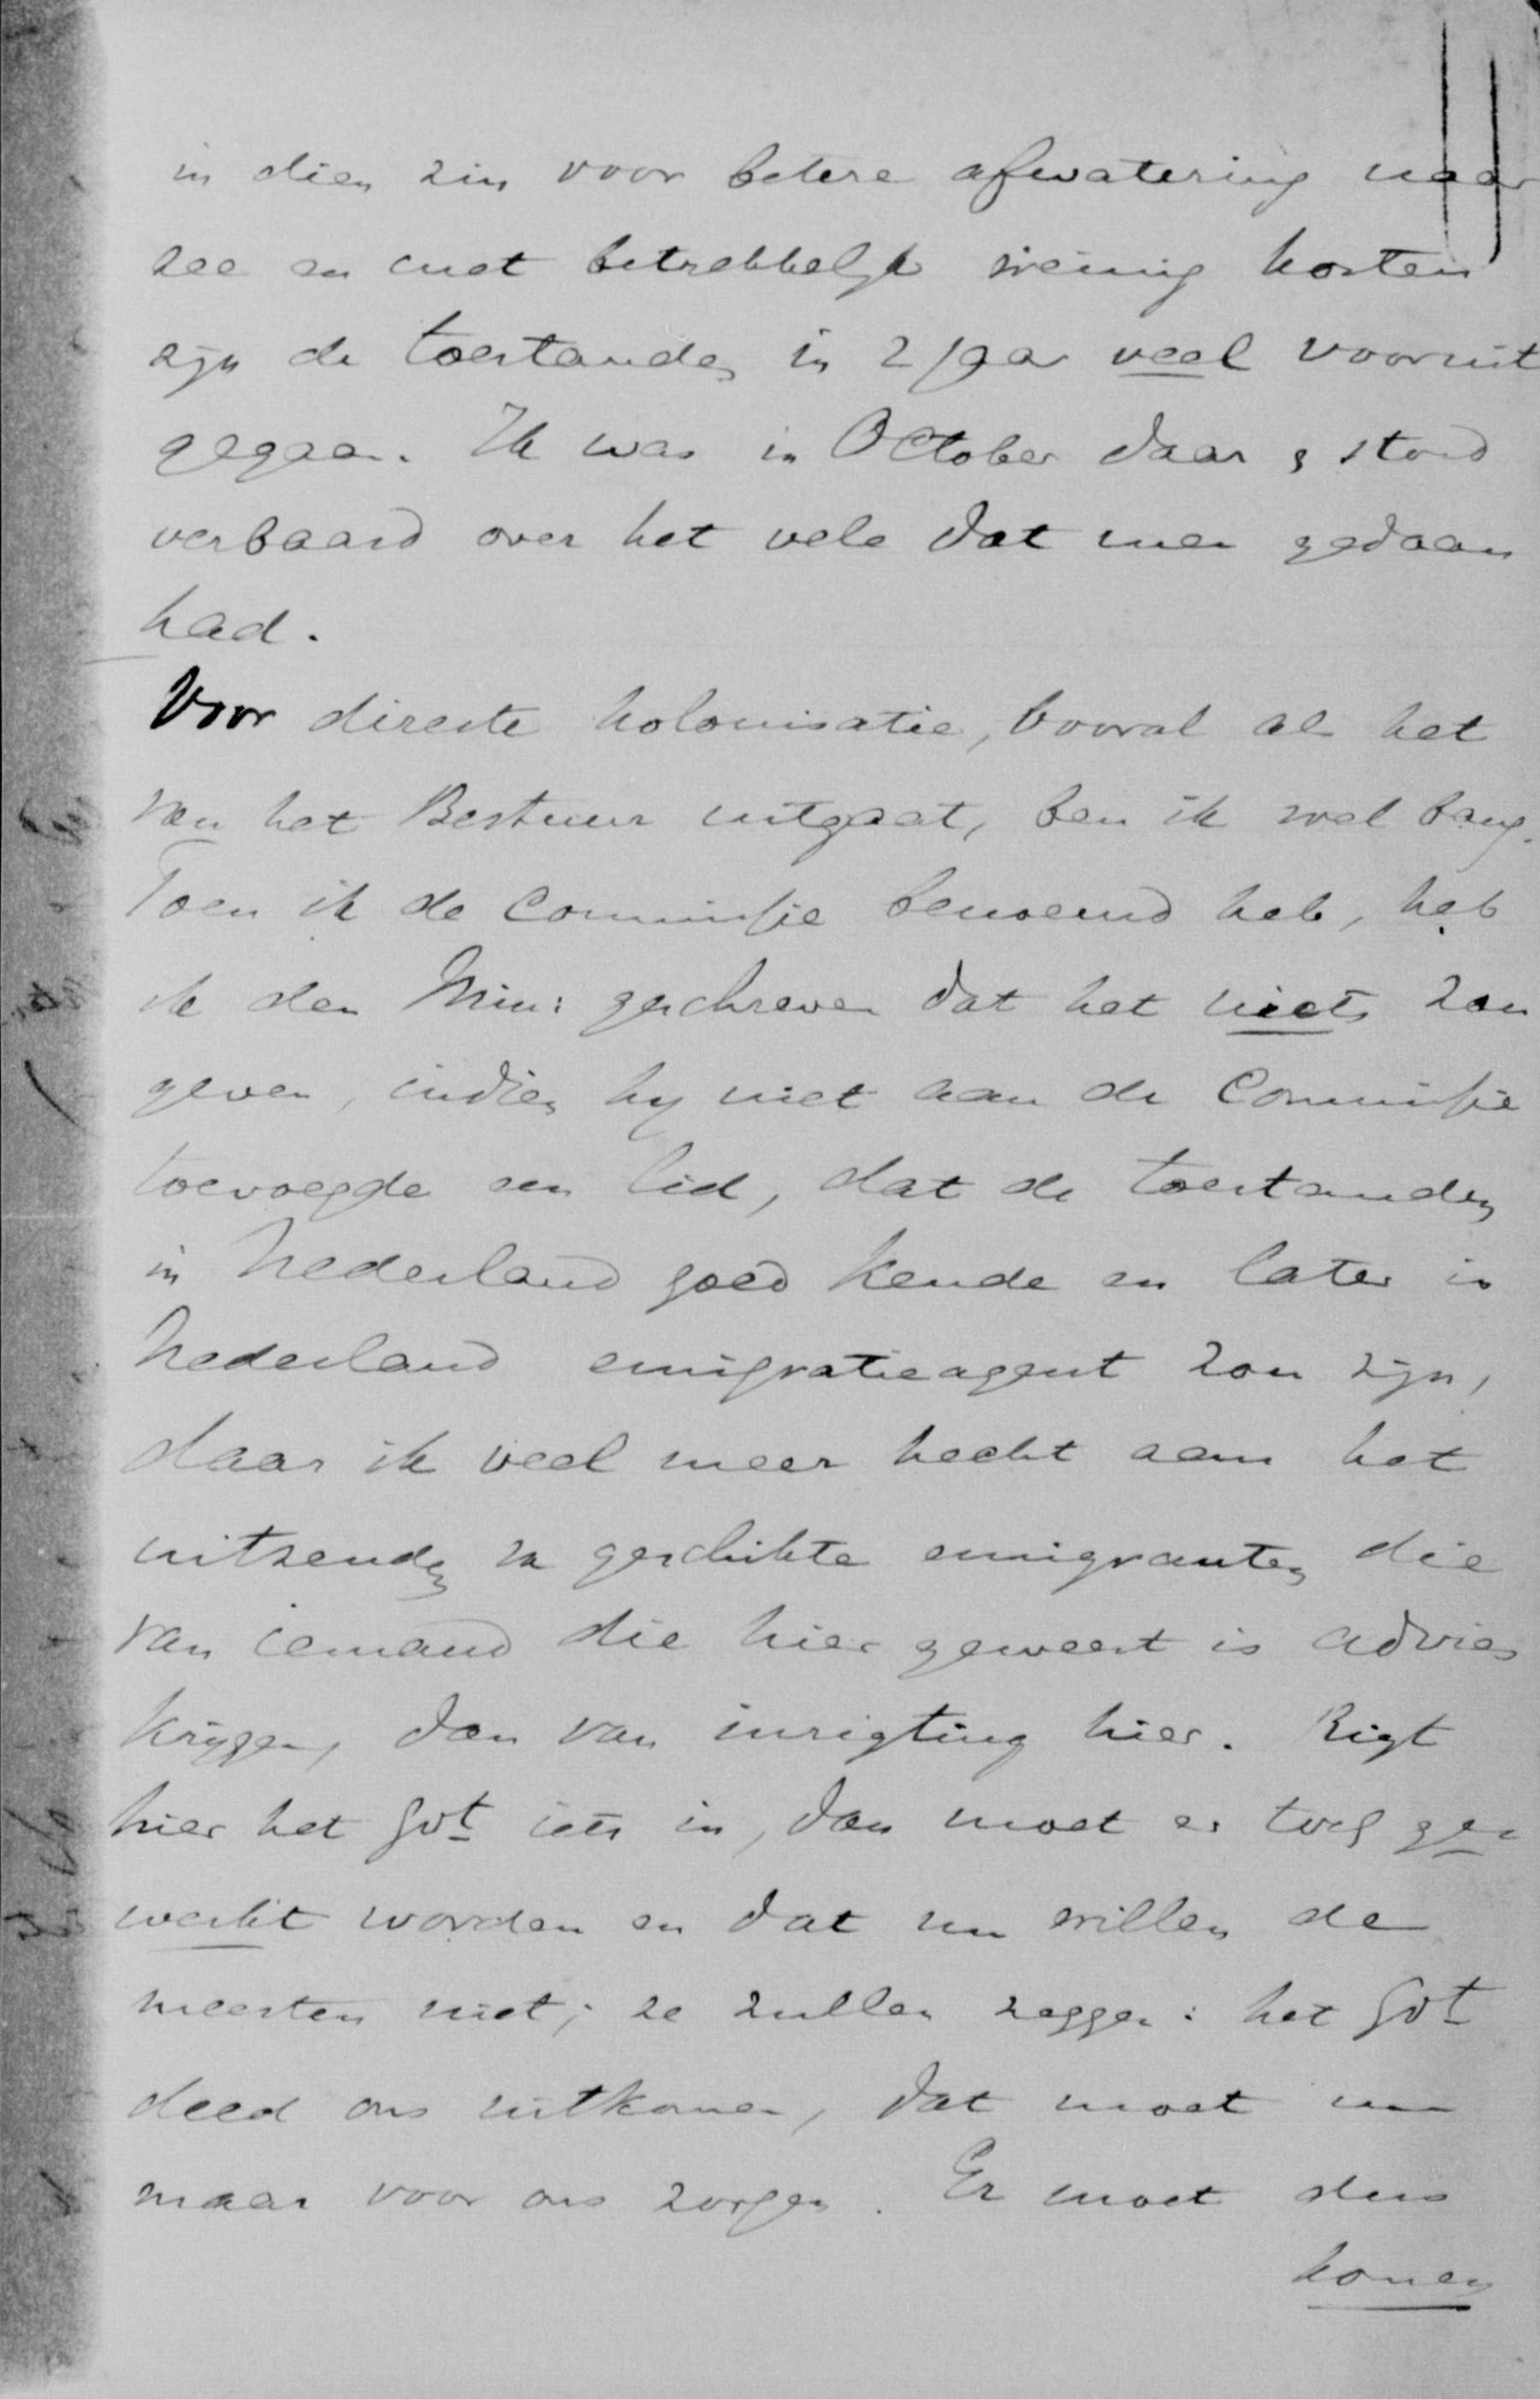 in dien zin voor betere afwatering naar
zee en met betrekkelijk weinig kosten
zijn de toestanden in 2 jaar veel vooruit
gegaan. Ik was in October daar & stond
verbaasd over het vele dat men gedaan
had.
Voor directe kolonisatie, vooral als het
van het Bestuur uitgaat, ben ik wel bang.
Toen ik de Commissie benoemd heb, heb
ik den Min: geschreven dat het niets zou
geven, indien hy niet aan de Commissie
toevoegde een lid, dat de toestanden
in Nederland goed kende en later in
Nederland emigratieagent zou zijn,
daar ik veel meer hecht aan het
uitzenden van geschikte emigranten die
van iemand die hier geweest is advies
krijgen, dan van inrigting hier. Rigt
hier het Gvt iets in, dan moet er toch ge
werkt worden en dat nu willen de
meesten niet; ze zullen zeggen: het Gvt
deed ons uitkomen, dat moet nu
maar voor ons zorgen. Er moet dus
komen